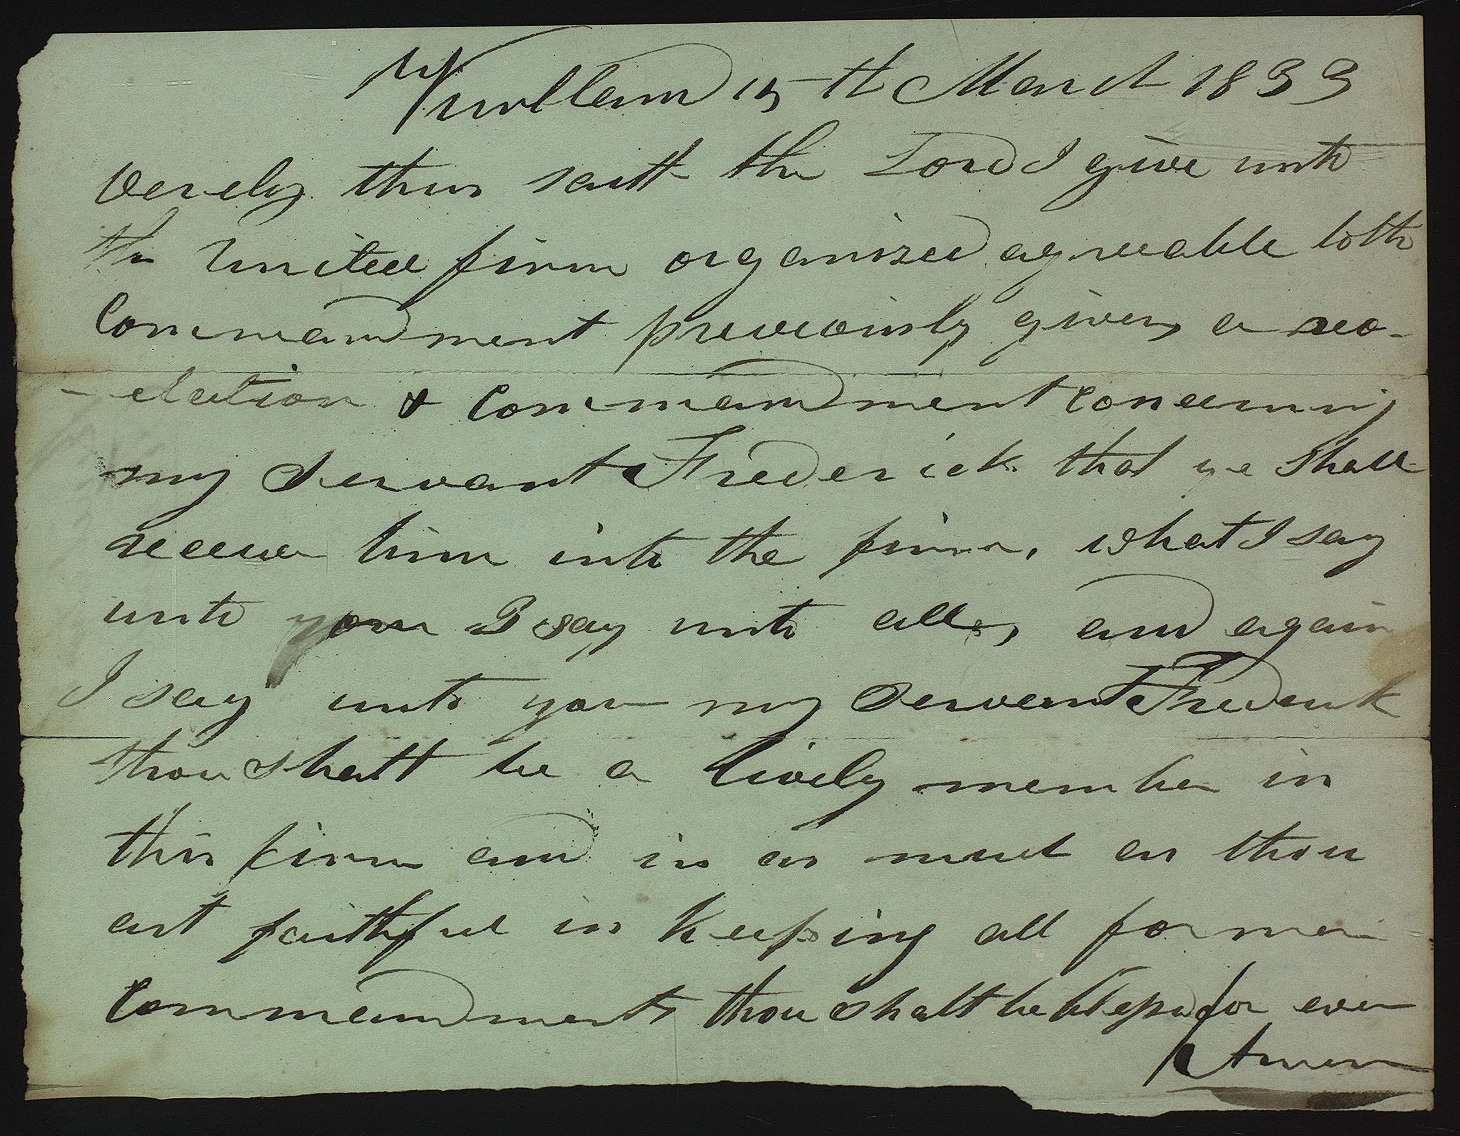 Kirtland 15th March 1833
Verely thus saith the Lord I give unto
the United firm organized agreeable to the
Commandment previously given, a rev-
-elation & Commandment concerning
my Servant Frederick that ye shall
receive him into the firm, what I say
unto you I say unto all, and again
I say unto you my servant Frederick
thou shalt be a lively member in
this firm and in as much as thou
art faithful in keeping all former
commandments thou shalt be blessed for ever
Amen